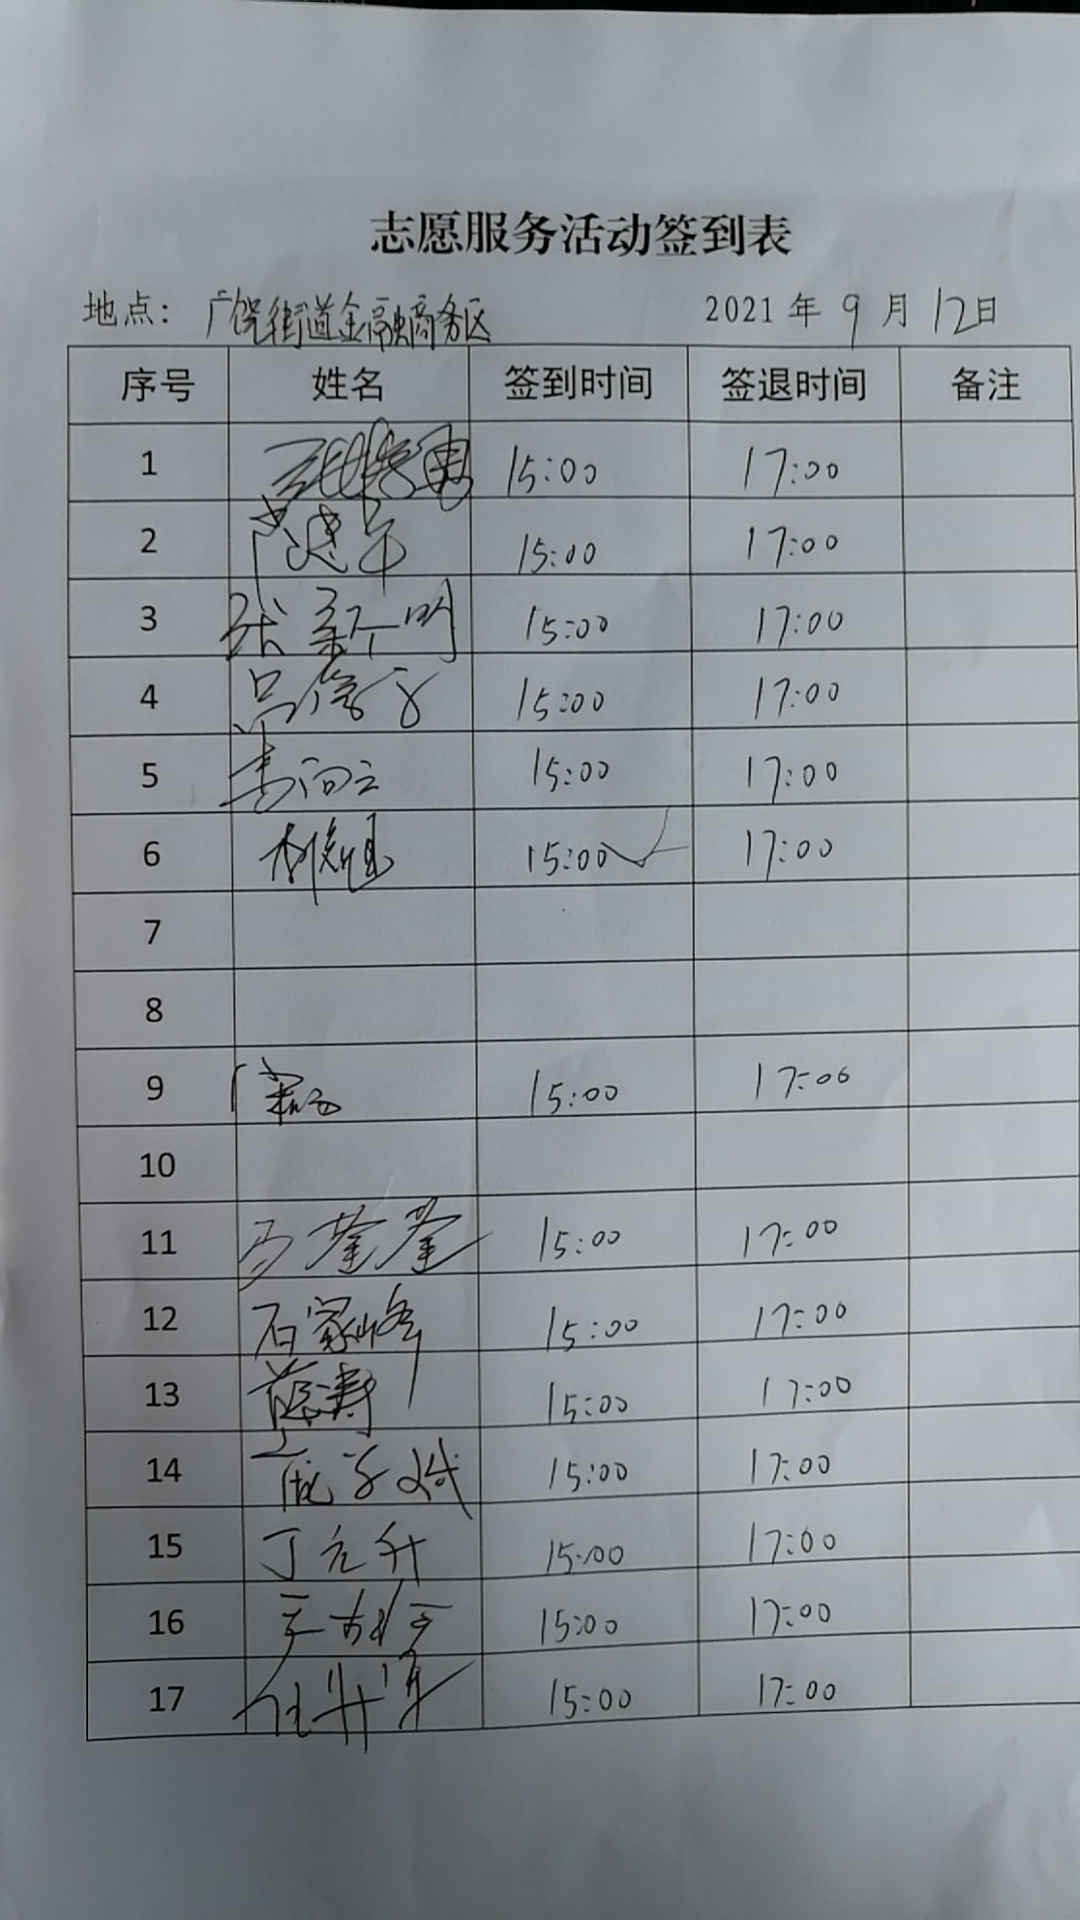 志愿服务活动签到表
地点: 广饶街道金融商务区 2021年9月12日
序号 姓名 签到时间 签退时间 备注
1 15:00 17:00
2 15:00 17:00
3 15:00 17:00
4 15:00 17:00
5 李向云 15:00 17:00
6 15:00 17:00
7
8
9 15:00 17:00
10
11 15:00 17:00
12 石家峰 15:00 17:00
13 薛涛 15:00 17:00
14 15:00 17:00
15 丁元升 15:00 17:00
16 15:00 17:00
17 15:00 17:00